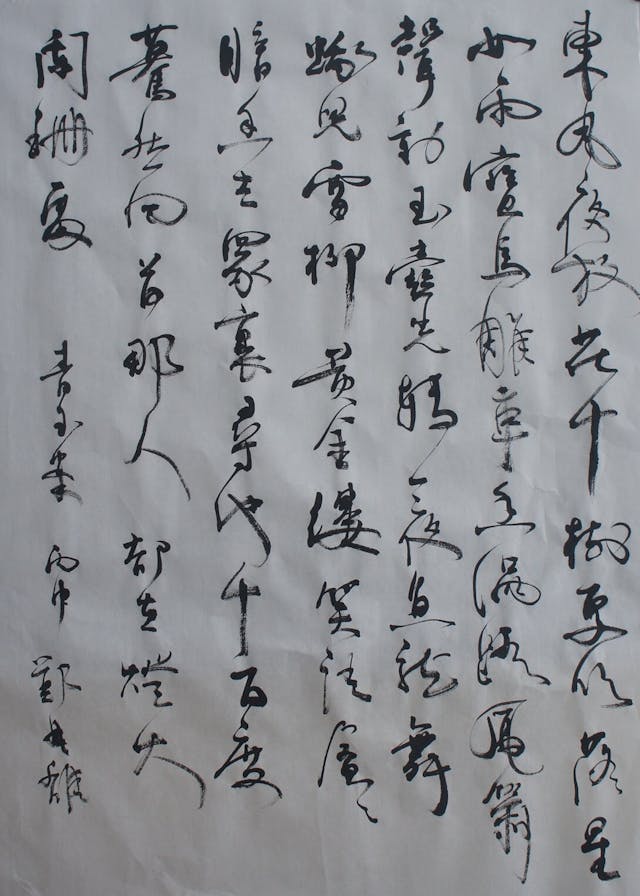 東風夜放花千樹更吹落星
如雨寶馬雕車香滿路鳳簫
聲動玉壺光轉一夜魚龍舞
蛾兒雪柳黃金縷笑語盈々
暗香去眾裏尋他千百度
驀然回首那人卻在燈火
闌珊處 青玉案 丙申